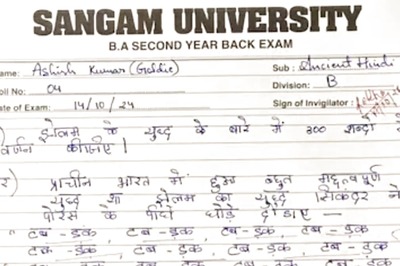 SANGAM UNIVERSITY
B.A SECOND YEAR BACK EXAM
ame: Ashish Kumar (Goldie) Sub : Ancient Hindi
oll No: 04 Division: B
ate of Exam: 14/10/24 Sign of Invigilator :
) झेलम के युद्ध के बारे में 300 शब्दों
वर्णन कीजिए।
र) प्राचीन भारत में हुआ बहुत महत्वपूर्ण
युद्ध था झेलम का युद्ध सिकंदर ने
पोरस के पीछे घोड़े दौड़ाए —
" टब - डक, टब - डक, टब - डक, टब - डक
टब - डक, टब - डक, टब - डक, टब - डक